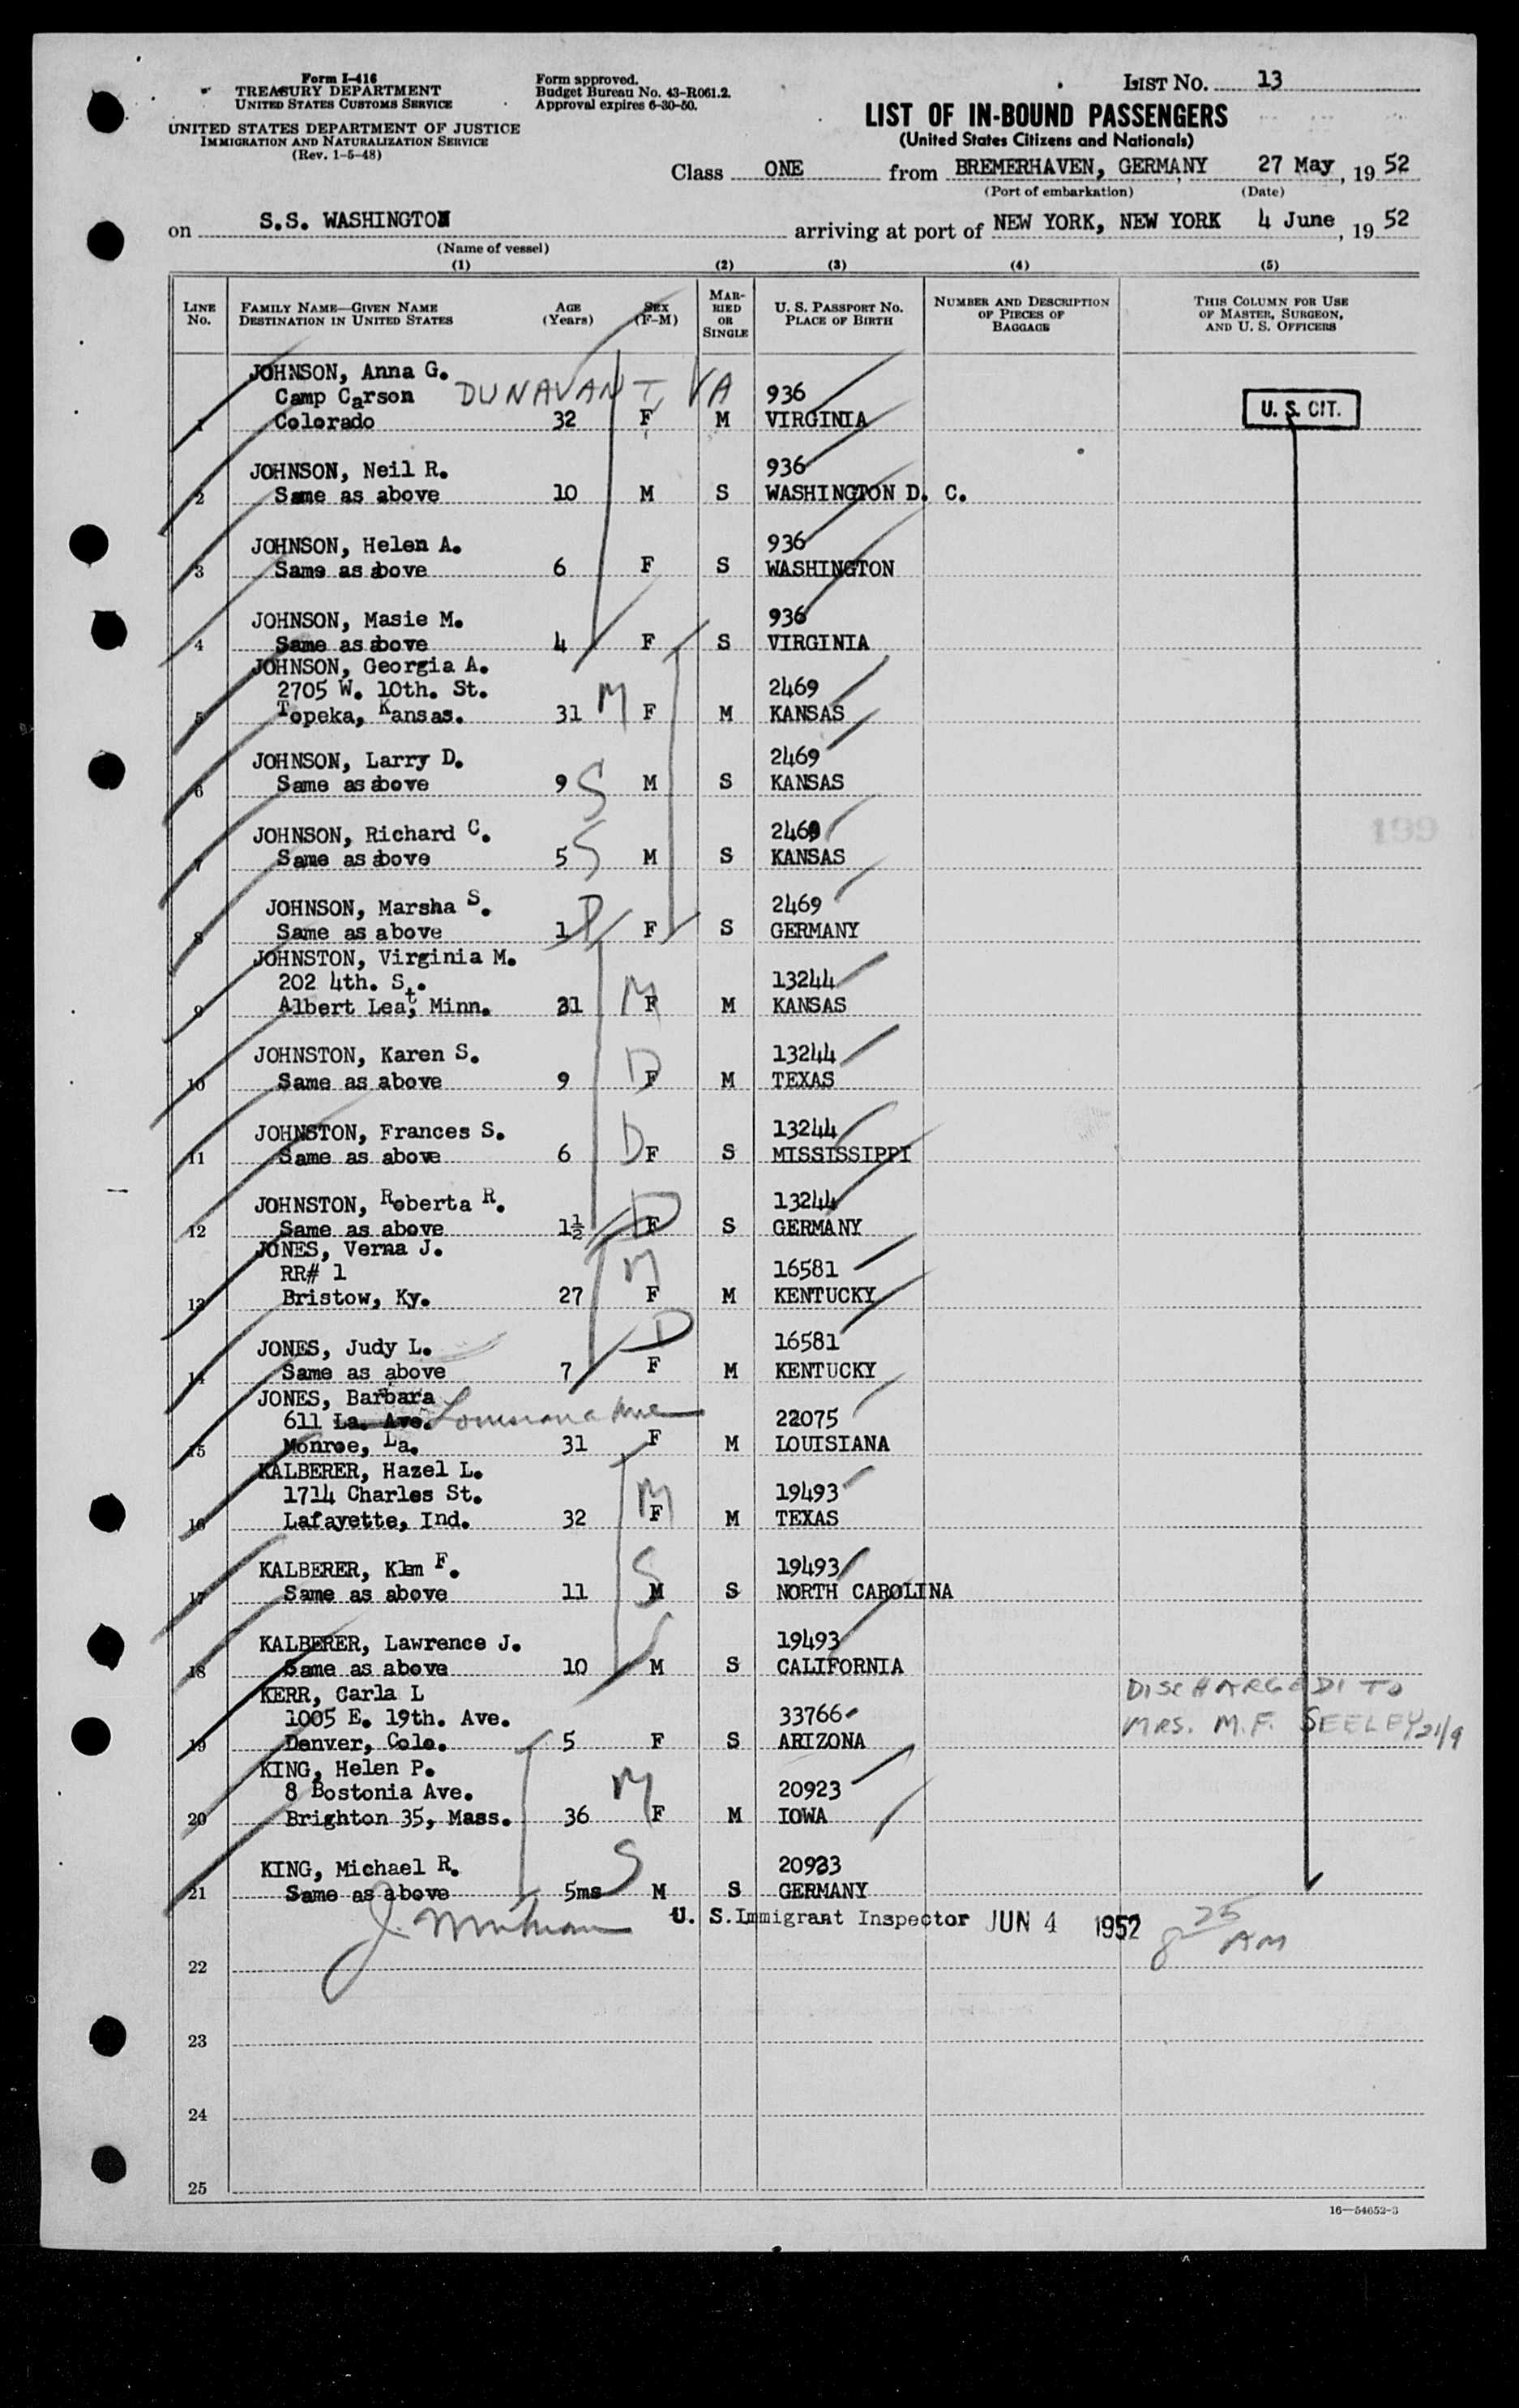 Form I-416
TREASURY DEPARTMENT
UNITED STATES CUSTOMS SERVICE
UNITED STATES DEPARTMENT OF JUSTICE
IMMIGRATION AND NATURALIZATION SERVICE
(Rev. 1-5-48)
Form approved.
Budget Bureau No. 43-R061.2.
Approval expires 6-30-50.
LIST NO. 13
LIST OF IN-BOUND PASSENGERS
(United States Citizens and Nationals)
Class ONE from BREMERHAVEN, GERMANY 27 May, 19 52
(Port of embarkation) (Date)
on S.S. WASHINGTON arriving at port of NEW YORK, NEW YORK 4 June, 19 52
(Name of vessel)
(1) (2) (3) (4) (5)
LINE NO. FAMILY NAME—GIVEN NAME DESTINATION IN UNITED STATES AGE (Years) SEX (F-M) MARRIED OR SINGLE U. S. PASSPORT NO. PLACE OF BIRTH NUMBER AND DESCRIPTION OF PIECES OF BAGGAGE THIS COLUMN FOR USE OF MASTER, SURGEON, AND U. S. OFFICERS
JOHNSON, Anna G.
Camp Carson DUNAVANT, VA 936 U. S. CIT.
1 Colorado 32 F M VIRGINIA
JOHNSON, Neil R. 936
2 Same as above 10 M S WASHINGTON D. C.
JOHNSON, Helen A. 936
3 Same as above 6 F S WASHINGTON
JOHNSON, Masie M. 936
4 Same as above 4 F S VIRGINIA
JOHNSON, Georgia A.
2705 W. 10th. St. M 2469
5 Topeka, Kansas. 31 F M KANSAS
JOHNSON, Larry D. 2469
6 Same as above 9 S M S KANSAS
JOHNSON, Richard C. 2469
199
7 Same as above 5 S M S KANSAS
JOHNSON, Marsha S. 2469
8 Same as above 1 D F S GERMANY
JOHNSTON, Virginia M.
202 4th. St. M 13244
9 Albert Lea, Minn. 31 F M KANSAS
JOHNSTON, Karen S. 13244
10 Same as above 9 D F M TEXAS
JOHNSTON, Frances S. 13244
11 Same as above 6 D F S MISSISSIPPI
JOHNSTON, Roberta R. 13244
12 Same as above 1½ D F S GERMANY
JONES, Verna J.
RR# 1 M 16581
13 Bristow, Ky. 27 F M KENTUCKY
JONES, Judy L. D 16581
14 Same as above 7 F M KENTUCKY
JONES, Barbara
611 La. Ave. Louisiana Ave 22075
15 Monroe, La. 31 F M LOUISIANA
KALBERER, Hazel L.
1714 Charles St. M 19493
16 Lafayette, Ind. 32 F M TEXAS
KALBERER, Klm F. S 19493
17 Same as above 11 M S NORTH CAROLINA
KALBERER, Lawrence J. 19493
18 Same as above 10 M S CALIFORNIA
KERR, Carla L DISCHARGED TO
1005 E. 19th. Ave. 33766 MRS. M.F. SEELEY 21/9
19 Denver, Colo. 5 F S ARIZONA
KING, Helen P.
8 Bostonia Ave. M 20923
20 Brighton 35, Mass. 36 F M IOWA
KING, Michael R. S 20923
21 Same as above 5ms M S GERMANY
U. S. Immigrant Inspector JUN 4 1952 8 25 AM
22
23
24
25
16—54652-3